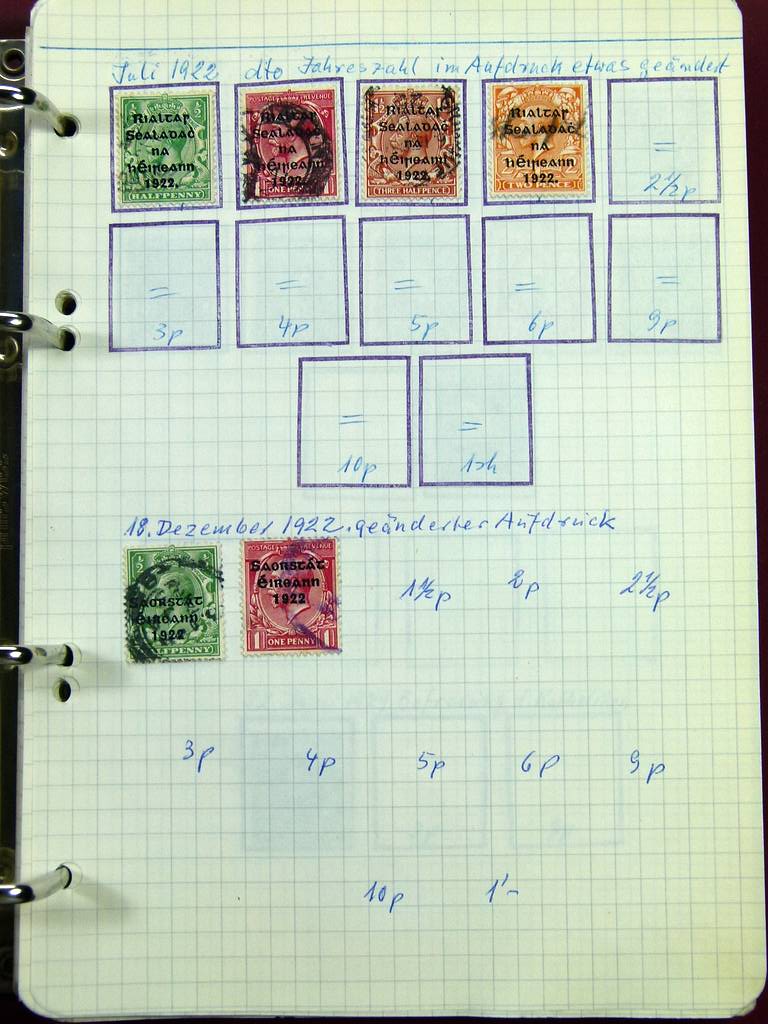 Juli 1922 dto Jahreszahl im Aufdruck etwas geändert
Rialtar Sealadaċ na hÉireann 1922. HALFPENNY
POSTAGE REVENUE Rialtar Sealadaċ na hÉireann 1922. ONE PENNY
Rialtar Sealadaċ na hÉireann 1922. THREE HALFPENCE
Rialtar Sealadaċ na hÉireann 1922. TWO PENCE
= 2½p
= 3p = 4p = 5p = 6p = 9p
= 10p = 1sh
18. Dezember 1922. geänderter Aufdruck
½ ½ SAORSTÁT ÉIREANN 1922 HALFPENNY
POSTAGE REVENUE SAORSTÁT ÉIREANN 1922 1 ONE PENNY 1
1½p 2p 2½p
3p 4p 5p 6p 9p
10p 1'-